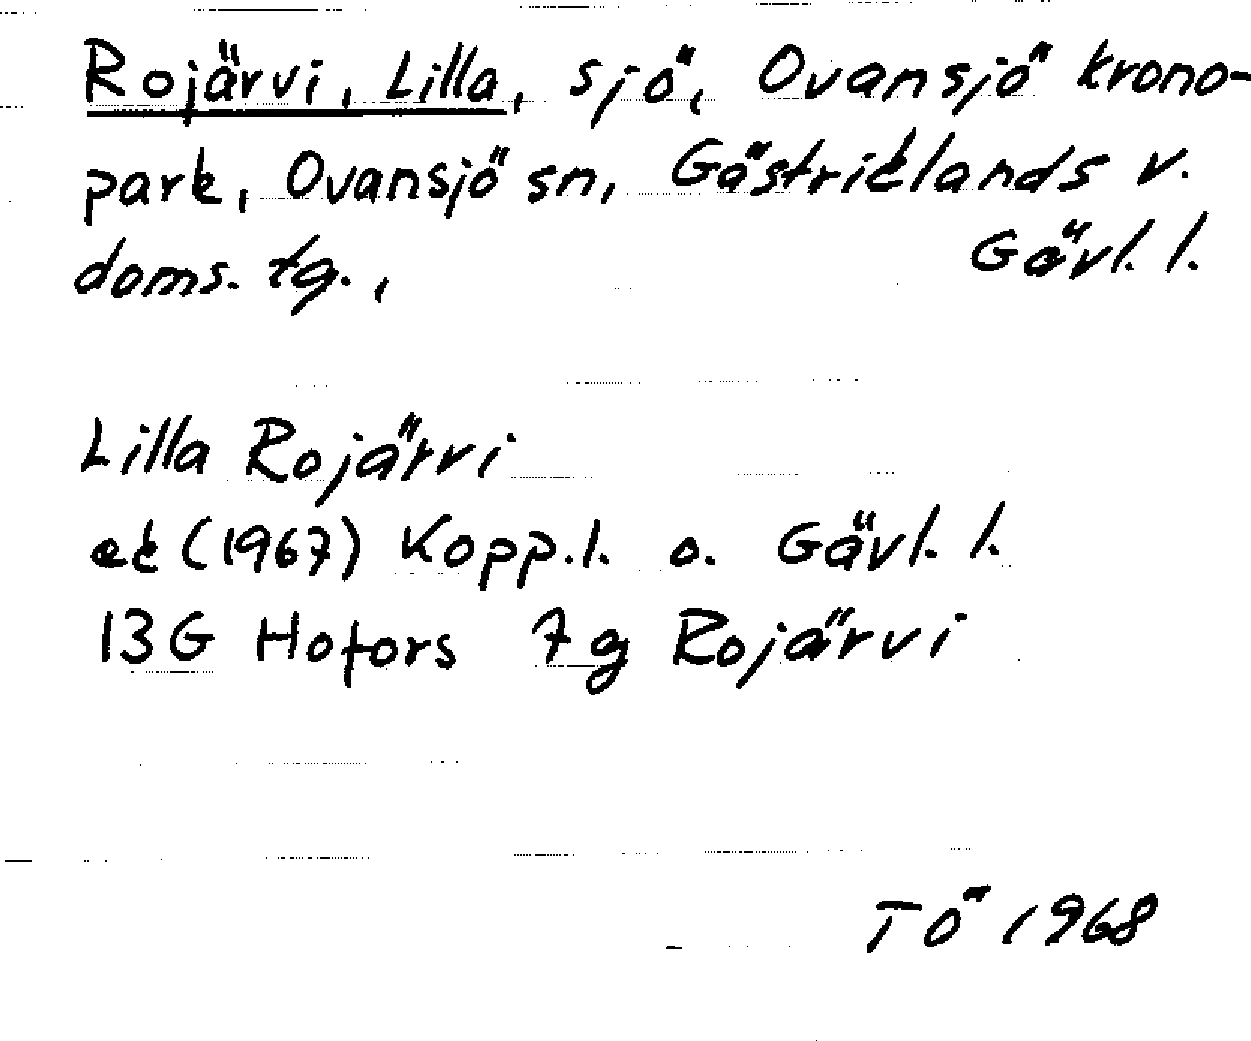 Rojärvi, Lilla, sjö, Ovansjö krono-
park, Ovansjö sn, Gästriklands v.
doms. tg., Gävl. l.
Lilla Rojärvi
ek (1967) Kopp.l. o. Gävl. l.
13G Hofors 7g Rojärvi
TÖ 1968